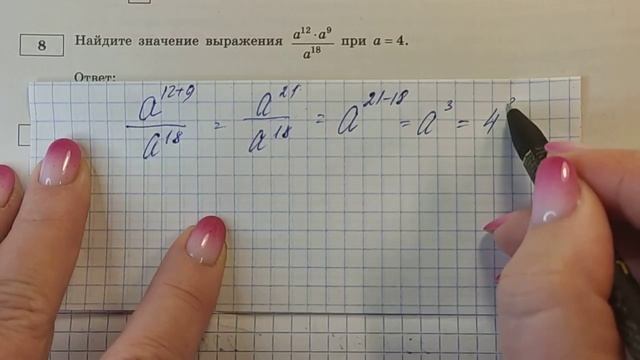 8
Найдите значение выражения a¹²·a⁹/a¹⁸ при a = 4.
Ответ:
a¹²⁺⁹/a¹⁸ = a²¹/a¹⁸ = a²¹⁻¹⁸ = a³ = 4